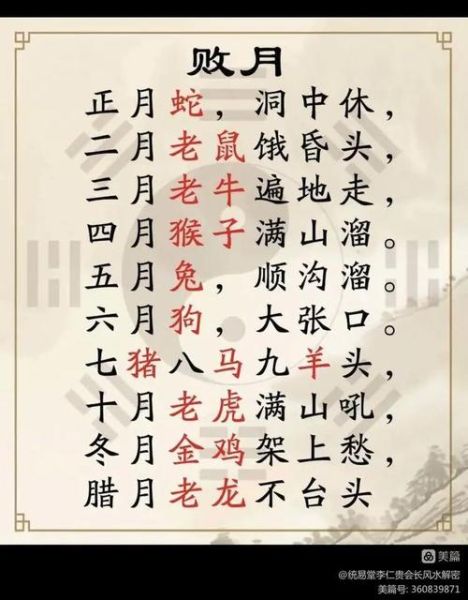 败月
正月蛇，洞中休，
二月老鼠饿昏头，
三月老牛遍地走，
四月猴子满山溜。
五月兔，顺沟溜。
六月狗，大张口。
七猪八马九羊头，
十月老虎满山吼，
冬月金鸡架上愁，
腊月老龙不台头
美篇
@统易堂李仁贵会长风水解密
美篇号: 360839871